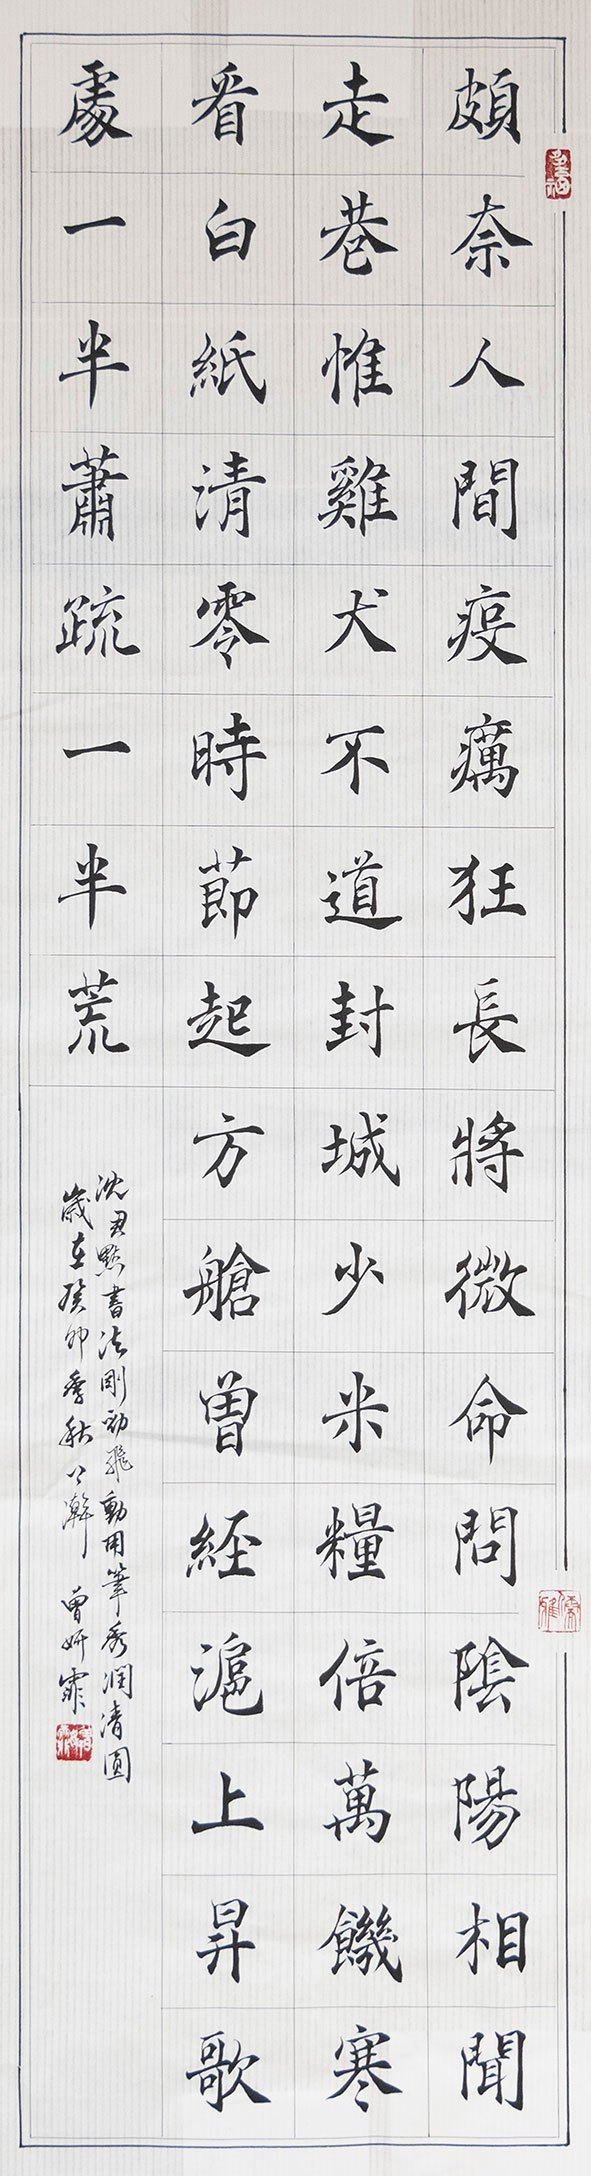 頗奈人間疫癘狂長將微命問陰陽相聞
走巷惟雞犬不道封城少米糧倍萬饑寒
看白紙清零時節起方艙曾經滬上昇歌
處一半蕭疏一半荒
沈尹默書法剛勁飛動用筆秀潤清圓
歲在癸卯季秋
曾妍霏